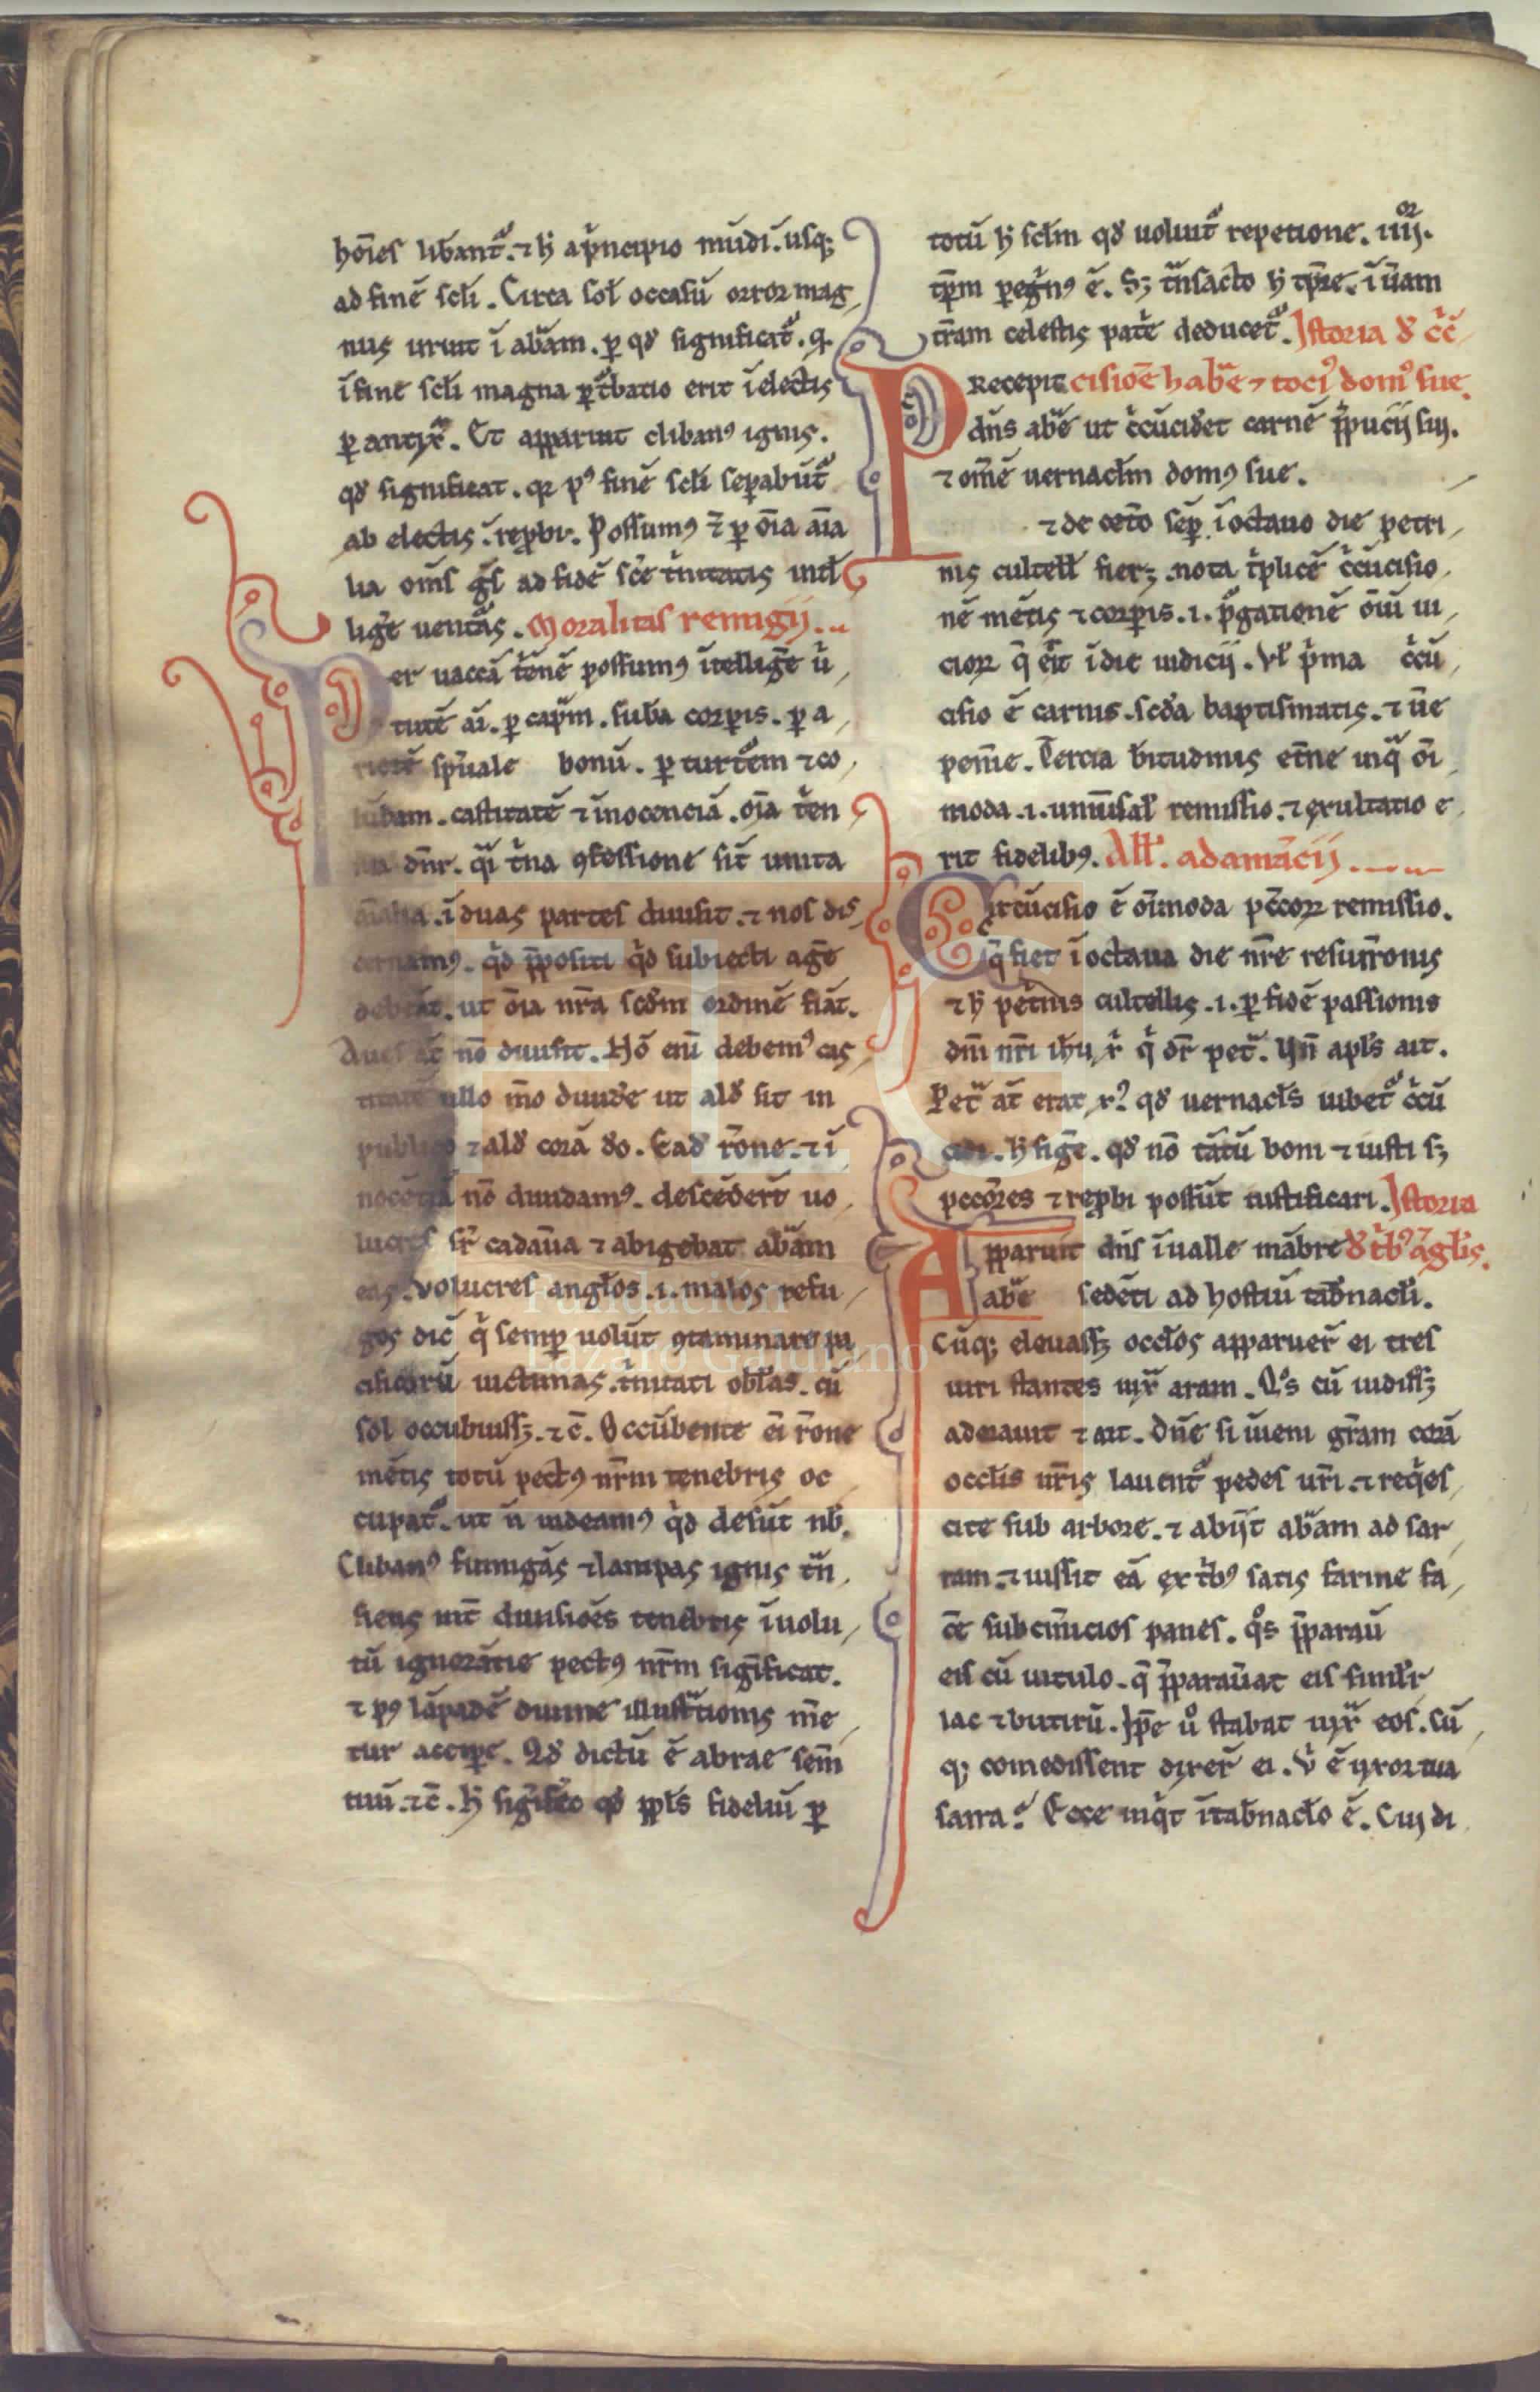 ho͞ıes libant᷑. ⁊ ħ ap̍ncipio mūdi. usq;
ad finē scłi. Circa soł occasū orror mag
nꝰ uruit ī ab̄am. ꝑ qđ significat᷑. q̵
ī fine scłi magna ꝑt̍batio erit ī electis
ꝑ antix᷑. Et apparuit clibanꝰ ignis.
qđ significat. qꝛ pꝰ finē scłi seꝑabūt᷑
ab electis. reꝓbi. Possumꝰ ꝑ oīa aīa
lia om̄s ad fidē sc̄e t̍nitatis
lig̍e uent̍as. Moralitas remigij.
Per uaccā t̍enē possumꝰ ītellig̍e u̍
tutē aī. ꝑ cap̍m. sub̍a corꝑis. ꝑ a
rietē sp̄uale bonū. ꝑ turt̍em ⁊ co
lūbam. castitatē ⁊ īnocenciā. oīa t̍en
na dn̄r. q̍ t̍na ꝯfessione sit̄ unita
aīalia. ī duas partes diuisit. ⁊ nos dis
cernamꝰ. q̍d p̄positi q̍d subiecti ag̍e
debeāt. ut oīa nr̄a scđm ordinē fiāt.
Aues āt nō diuisit. Hō eni̅ debemꝰ cas
titatē ullo m̄o diuid̍e ut alđ sit in
publico ⁊ alđ corā đo. Eađ r̄one. ⁊ ī
nocētiā nō diuidamꝰ. descēder̄t uo
lucres sr̄ cadau̍a ⁊ abigebat ab̄am
eas. Volucres angłos. ı. malos refu
gos dic̄ q̍ semꝑ uolūt ꝯtaminare pa
cificorū uictimas. t̍nitati obłas. cū
sol occubuiss̄ꝫ. ⁊c̄. Occūbente ei̅ r̄one
mētis totū pectꝰ nr̄m tenebris oc
cupat᷑. ut n̄ uideamꝰ q̍d desūt nb̄.
Clibanꝰ fumigās ⁊ lampas ignis t̍n
siens int̄ diuisiōes tenebris īuolu
tū ignorātie pectꝰ nr̄m significat.
⁊ pꝰ lāpadē diuine illust̍tionis m̄e
tur acciꝑe. Qđ dictū ē abrae sem̄
tuū. ⁊c̄. ħ qđ ppłs fideliū ꝑ
totū ħ scłm qđ uoluit᷑ repetione. iiij.ᵒʳ
tp̄m peg̍nꝰ ē. Sꝫ t̍nsacto ħ tp̄re. ī u̍am
t̄ram celestis pat̍e deducet᷑. Istoria đ c̍c̄
Precepit cisiōe hab̍e ⁊ tociꝰ domꝰ sue.
dn̄s ab̍e ut c̍cūciđet carnē p̄pucij sui.
⁊ omē uernacłm domꝰ sue.
⁊ de cet̍o seꝑ. ī octauo die petri
nis cultell̵ fierꝫ. nota t̍plicē c̍cūcisio
nē mētis ⁊ corꝑis. ı. p̍gationē oīu̅ ui
cioꝝ q̄ e̍it ī die iudicij. Vł p̍ma c̍cū
cisio ē carnis. scđa baptismatis. ⁊ u̅e
penit̄e. Tercia b̍titudinis et̍ne inq̍ oī
moda. ı. uniu̍sał remissio. ⁊ exultatio e
rit fidelibꝰ. Ałł. adamācij.
Circūcisio ē oīmoda pc̄coꝝ remissio.
q̄ fiet ī octaua die nr̄e resurr̄onis
⁊ ħ pet̍nis cultellis. ı. ꝑ fidē passionis
dn̄i nr̄i ih̄u q̍ dr̄ pet̍. Vn̄ apłs ait.
Pet̍ āt erat qđ uernacłs iubet᷑ c̍cū
cidi. ħ sign̄. qđ nō tātū boni ⁊ iusti sꝫ
peccōres ⁊ reꝓbi possūt iustificari. Istoria
Apparuit dn̄s ī ualle mābre đ t̍bꝰ āgłis.
ab̍e sedēti ad hostiū tab̍nacłi.
Cūq; eleuass̄ꝫ occłos apparuer̄ ei tres
uiri stantes iux̍ aram. Q᷑s cū uidiss̄ꝫ
adorauit ⁊ ait. Dn̄e si īueni gr̄am corā
occłis ur̄is lauent᷑ pedes ur̄i. ⁊ req̍es
cite sub arbore. ⁊ abijt ab̄am ad sar
ram. ⁊ iussit eā ex t̍bꝰ satis farine fa
c̄e subcin̍icios panes. q᷑s p̄parau̅
eis cū uitulo. q̄ p̄parau̍at eis similr̄
lac ⁊ butirū. Ip̄e u͛o stabat iux̍ eos. Cū
q; comedissent dixer̄ ei. Vƀ ē uxor tua
sarra? Ecce inq̍t ī tab̍nacło ē. Cui di